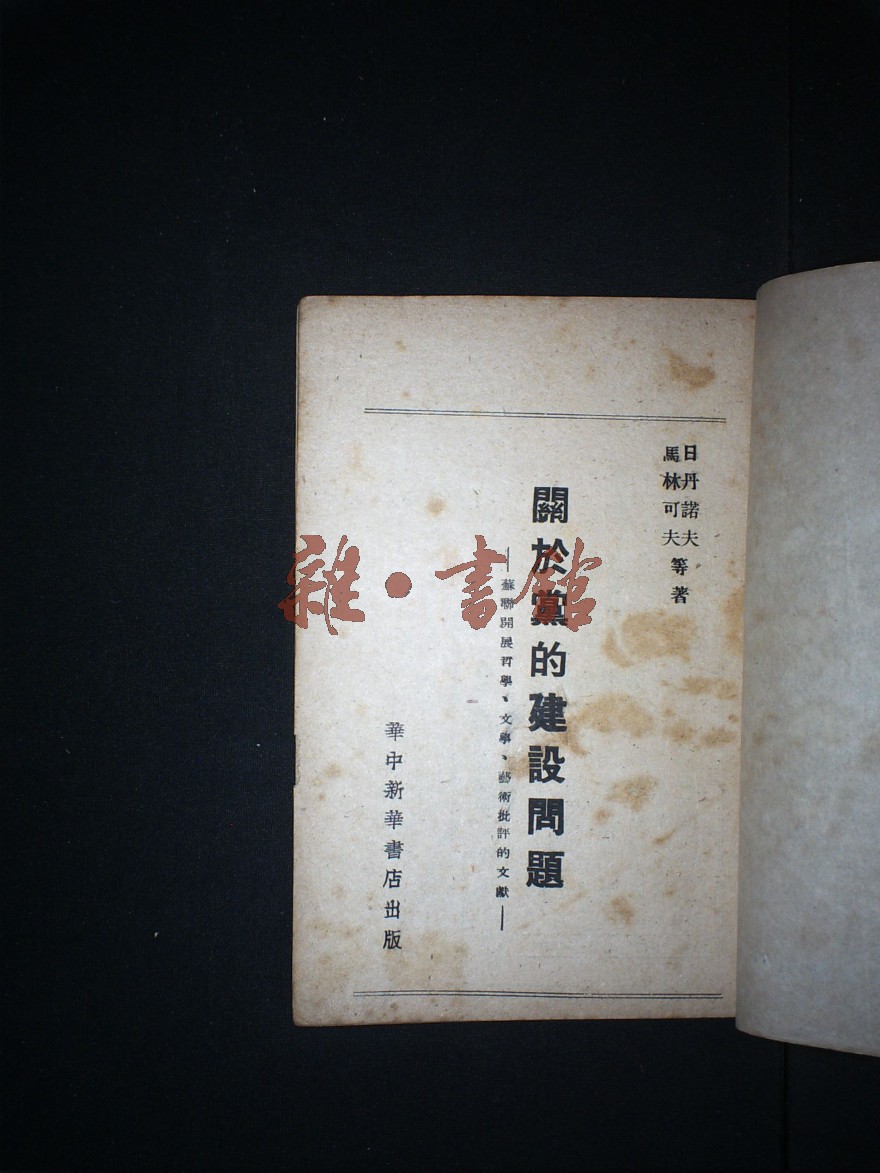 日丹諾夫
馬林可夫
等著
關於黨的建設問題
——蘇聯開展哲學、文學、藝術批評的文獻——
華中新華書店出版
雜·書館